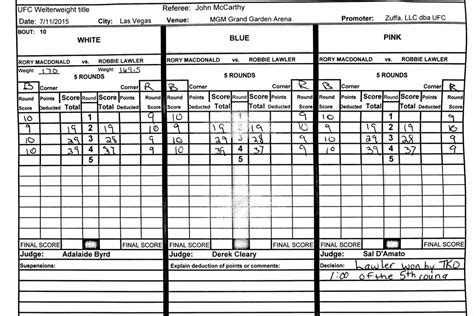 UFC Welterweight title Referee: John McCarthy
Date: 7/11/2015 City: Las Vegas Venue: MGM Grand Garden Arena Promoter: Zuffa, LLC dba UFC
BOUT: 10
WHITE BLUE PINK
RORY MACDONALD vs. ROBBIE LAWLER RORY MACDONALD vs. ROBBIE LAWLER RORY MACDONALD vs. ROBBIE LAWLER
Weight 170 Weight 169.5
5 ROUNDS 5 ROUNDS 5 ROUNDS
B Corner Corner R B Corner Corner R B Corner Corner R
Round Points Score Round Score Points Round Round Points Score Round Score Points Round Round Points Score Round Score Points Round
Score Deducted Total Total Deducted Score Score Deducted Total Total Deducted Score Score Deducted Total Total Deducted Score
10 1 9 10 1 9 10 1 9
9 19 2 19 10 9 19 2 19 10 9 19 2 19 10
10 29 3 28 9 10 29 3 28 9 10 29 3 28 9
10 39 4 37 9 10 39 4 37 9 10 39 4 37 9
5 5 5
FINAL SCORE FINAL SCORE FINAL SCORE FINAL SCORE FINAL SCORE FINAL SCORE
Judge: Adalaide Byrd Judge: Derek Cleary Judge: Sal D'Amato
Suspensions: Explain deduction of points or comments: Decision: Lawler won by TKO
1:00 of the 5th round